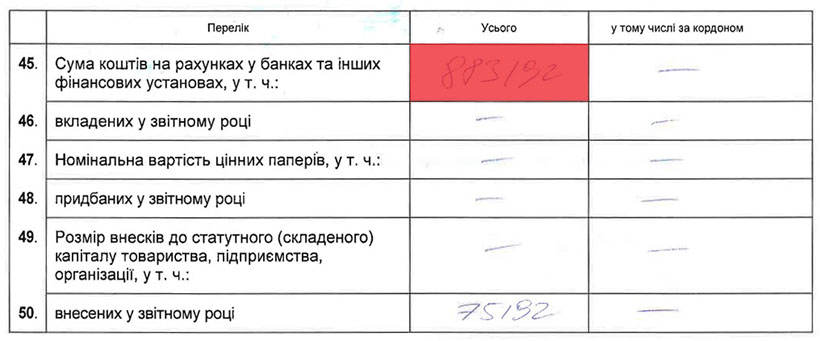 Перелік Усього у тому числі за кордоном
45. Сума коштів на рахунках у банках та інших 883192 —
фінансових установах, у т. ч.:
46. вкладених у звітному році — —
47. Номінальна вартість цінних паперів, у т. ч.: — —
48. придбаних у звітному році — —
49. Розмір внесків до статутного (складеного) — —
капіталу товариства, підприємства,
організації, у т. ч.:
50. внесених у звітному році 75192 —